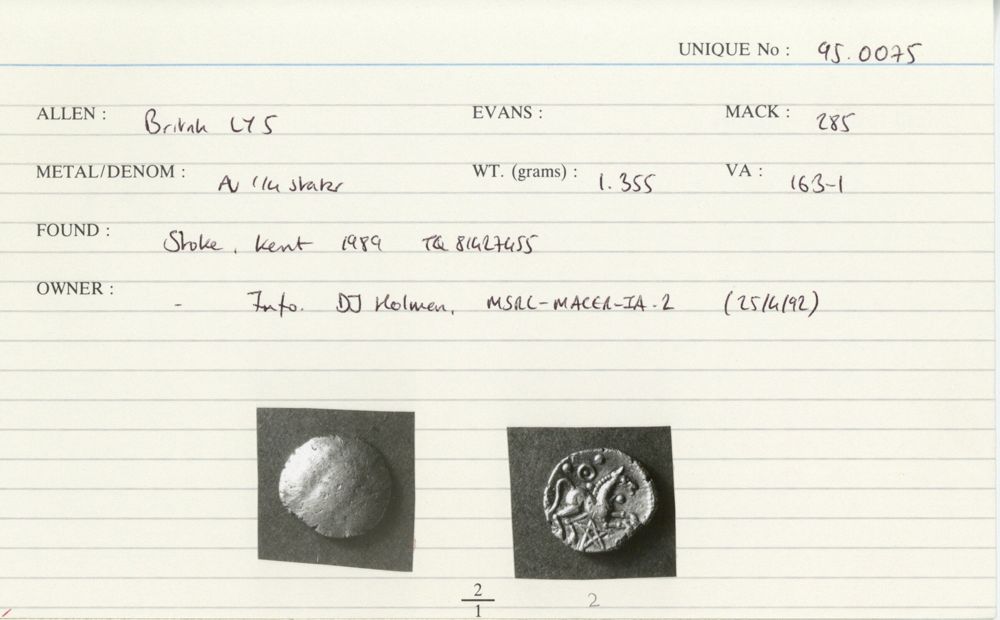 UNIQUE No : 95.0075
ALLEN : British LY5 EVANS : MACK : 285
METAL/DENOM : AV 1/4 stater WT. (grams) : 1.355 VA : 163-1
FOUND : Stoke, Kent 1989 TQ 81427455
OWNER : - Info. DJ Holman, MSRC-MACER-IA.2 (25/4/92)
2
1
2